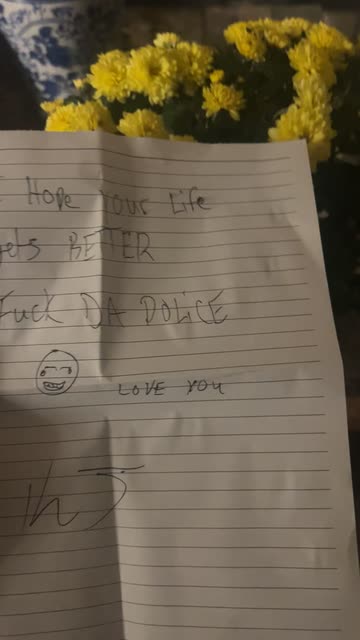 I HOPE YOUR LIFE
gets BETTER
FUCK DA DOLICE
LOVE YOU